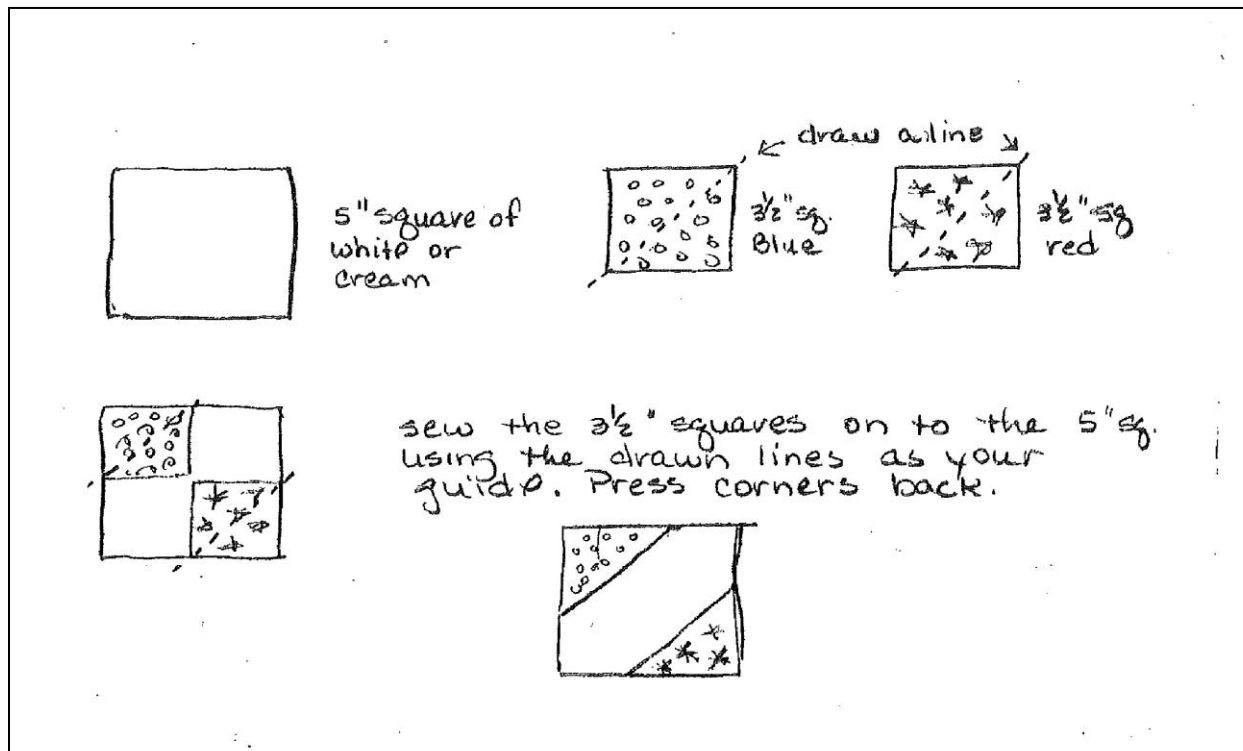 draw a line
5" square of
white or
cream
3½" sq.
Blue
3½" sq
red
sew the 3½" squares on to the 5" sq.
using the drawn lines as your
guide. Press corners back.